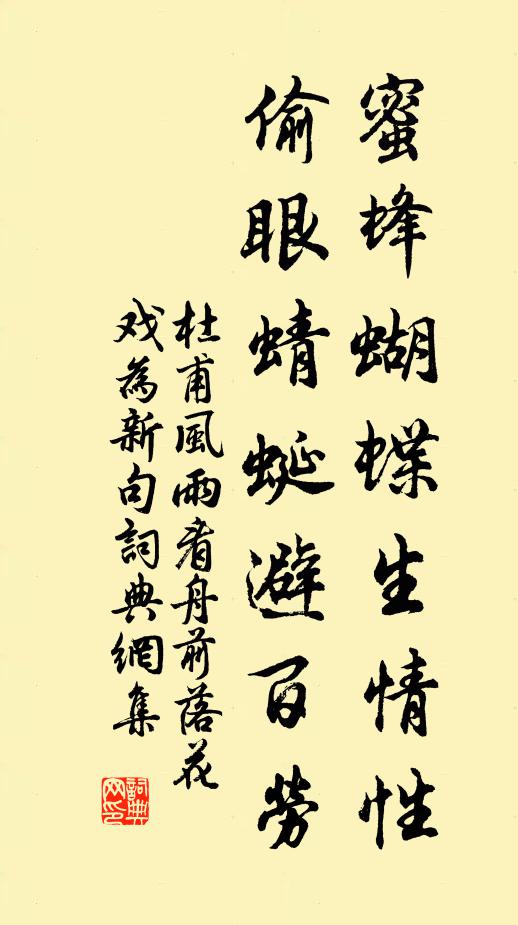 蜜蜂蝴蝶生情性
偷眼蜻蜓避百勞
杜甫風雨看舟前落花
戏為新句詞典網集
詞典网印